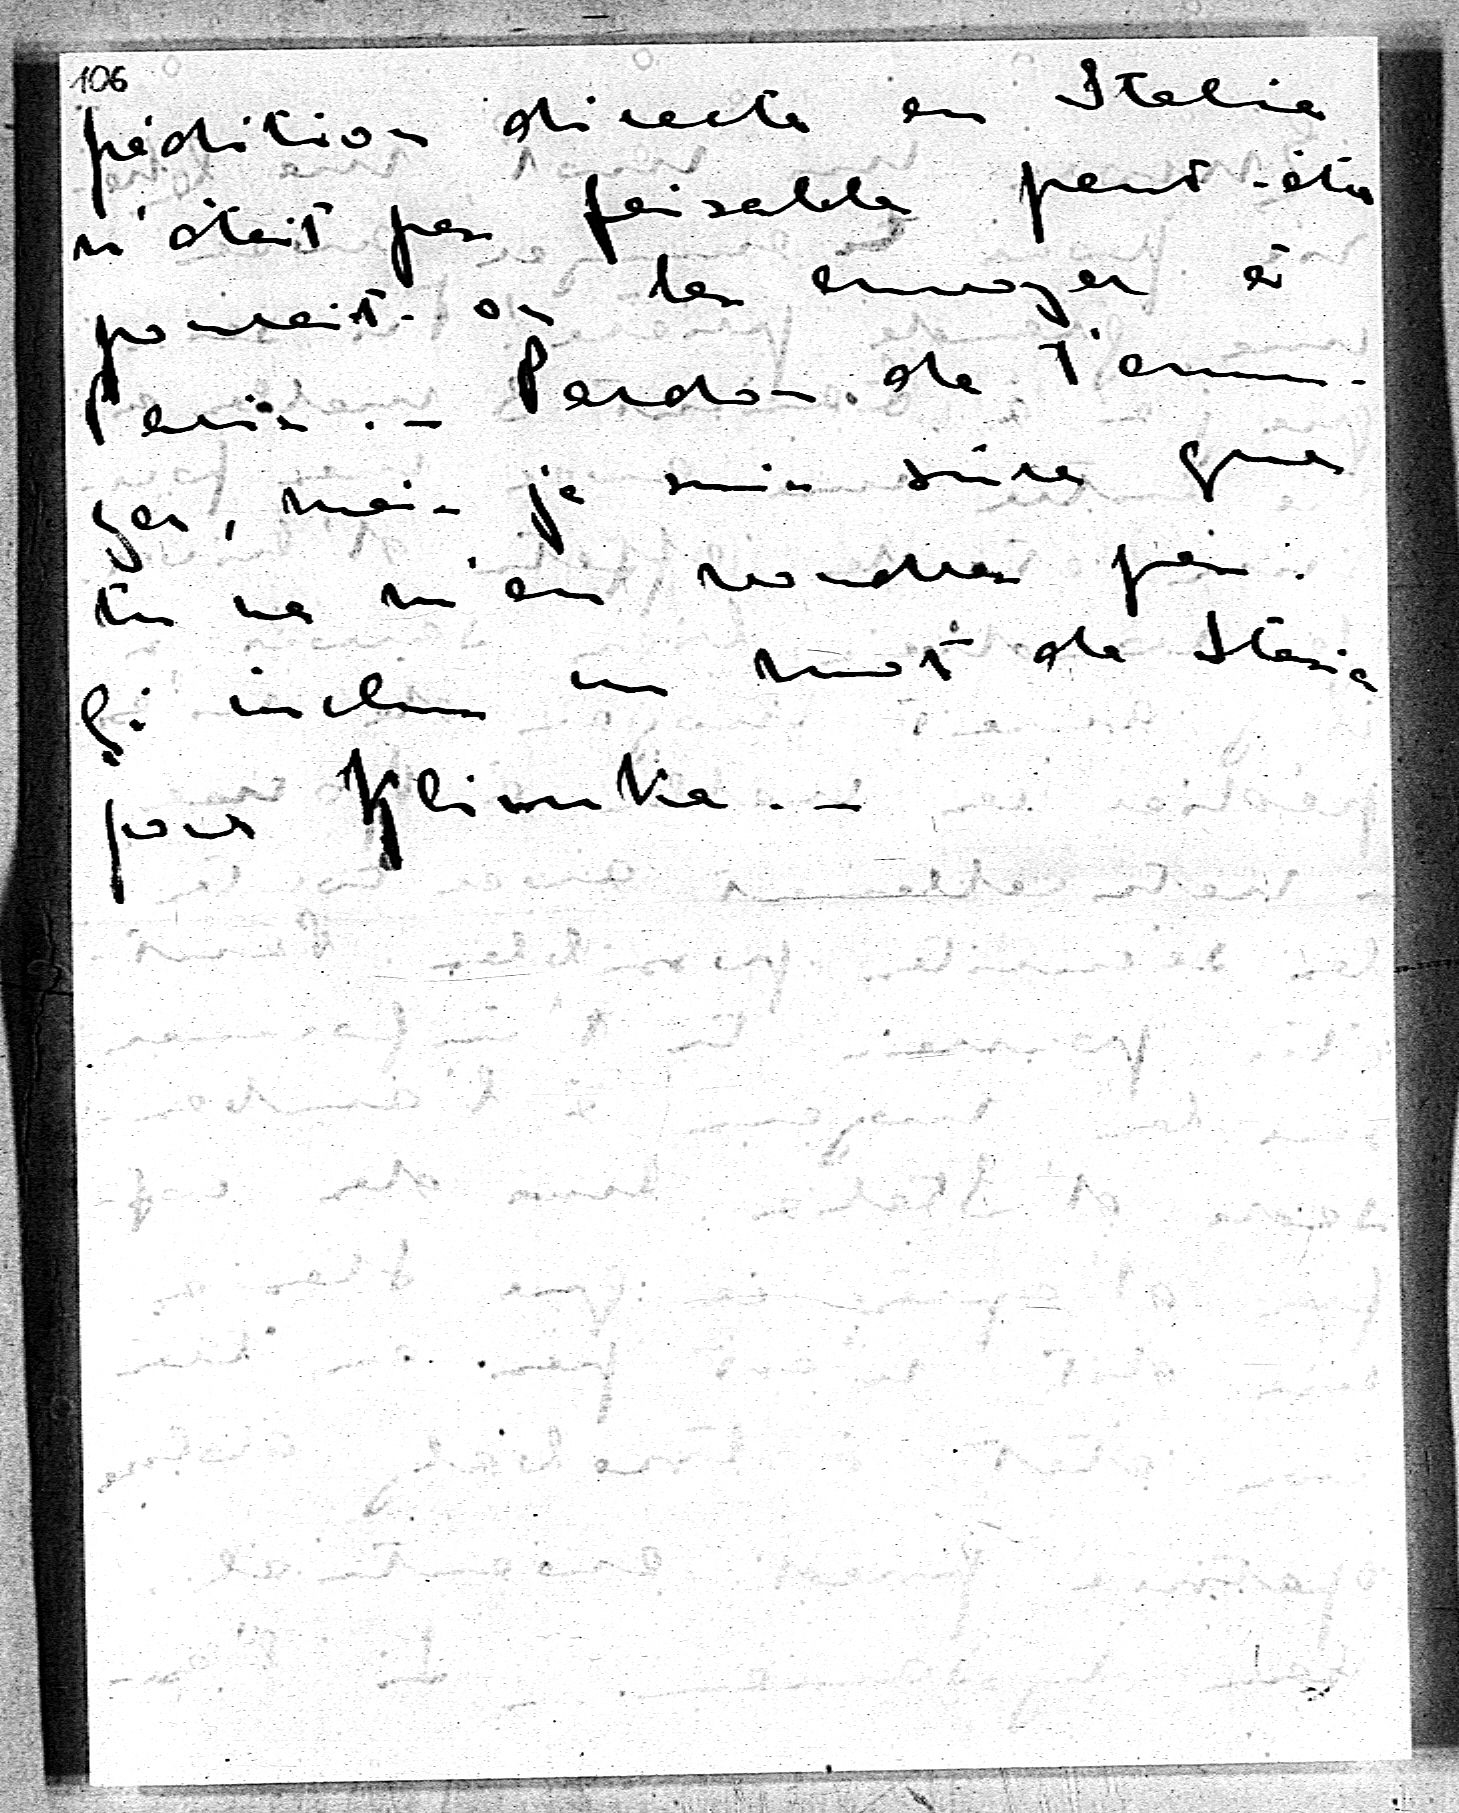 106
pédition directe en Italie
n'était pas faisable peut-être
pourait-on les envoyer à
Paris. — Pardon de t'ennu-
yer, mais je suis sûre que
tu ne m'en voudras pas.
Çi inclus un mot de Stasia
pour Klimutka. —